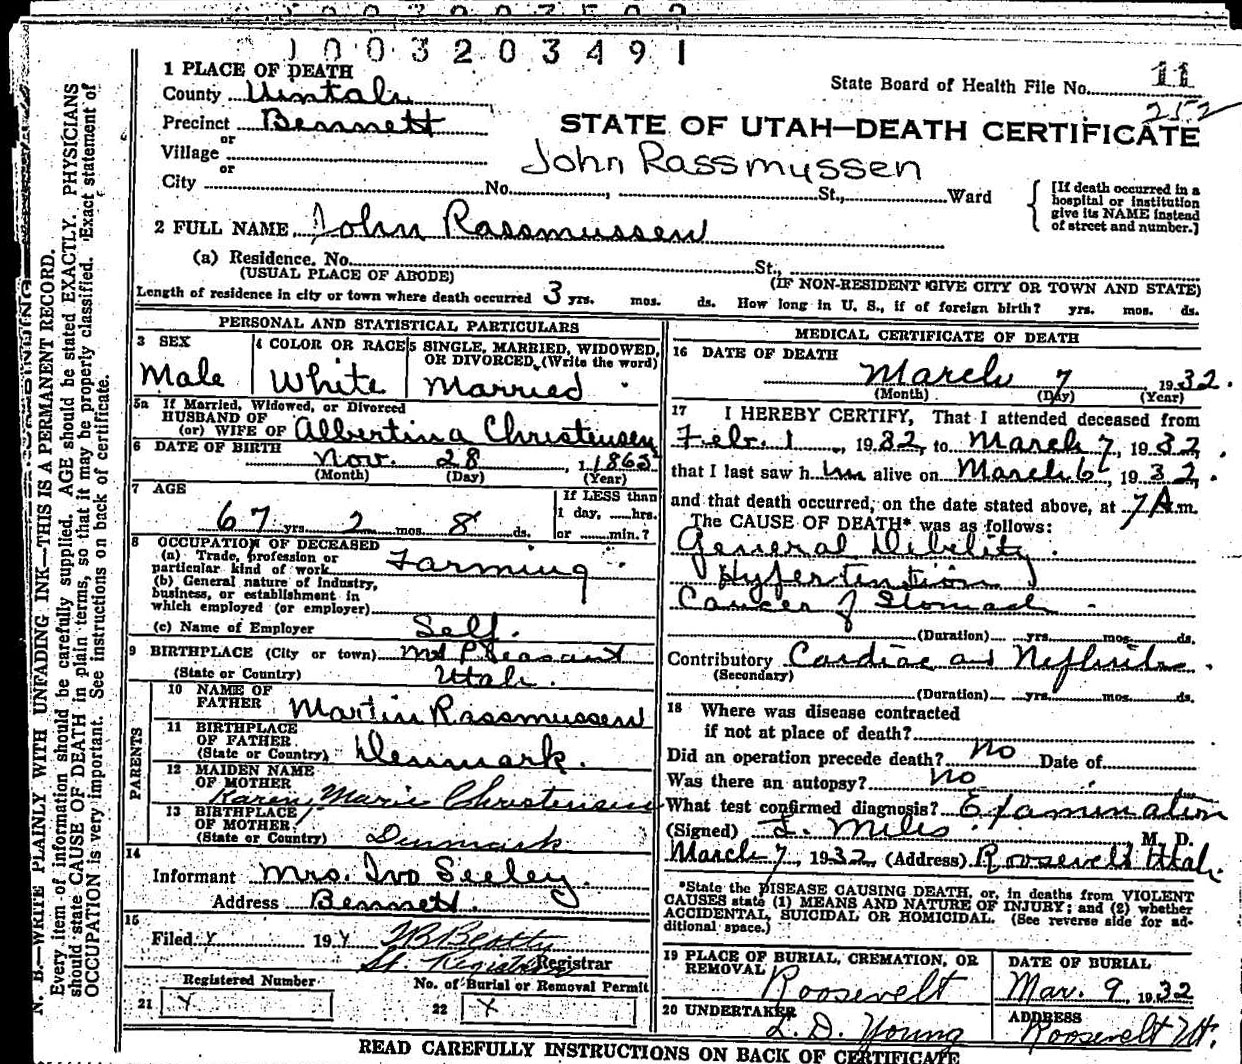 1003203491
1 PLACE OF DEATH
County Uintah
State Board of Health File No. 11
252
Precinct Bennett
STATE OF UTAH—DEATH CERTIFICATE
or
Village
John Rassmussen
or
City No. , St., Ward
[If death occurred in a
hospital or institution
give its NAME instead
of street and number.]
2 FULL NAME John Rassmussen
(a) Residence. No. St.,
(USUAL PLACE OF ABODE) (IF NON-RESIDENT GIVE CITY OR TOWN AND STATE)
Length of residence in city or town where death occurred 3 yrs. mos. ds. How long in U. S., if of foreign birth? yrs. mos. ds.
PERSONAL AND STATISTICAL PARTICULARS
3 SEX
Male
4 COLOR OR RACE
White
5 SINGLE, MARRIED, WIDOWED,
OR DIVORCED, (Write the word)
Married
5a If Married, Widowed, or Divorced
HUSBAND OF
(or) WIFE OF Albertina Christensen
6 DATE OF BIRTH
Nov. 28, 1865
(Month) (Day) (Year)
7 AGE
67 yrs. 2 mos. 8 ds.
If LESS than
1 day, hrs.
or min.?
8 OCCUPATION OF DECEASED
(a) Trade, profession or
particular kind of work Farming
(b) General nature of Industry,
business, or establishment in
which employed (or employer)
(c) Name of Employer Self.
9 BIRTHPLACE (City or town) Mt Pleasant
(State or Country) Utah.
PARENTS
10 NAME OF
FATHER Martin Rassmussen
11 BIRTHPLACE
OF FATHER
(State or Country) Denmark.
12 MAIDEN NAME
OF MOTHER
Karen Marie Christensen
13 BIRTHPLACE
OF MOTHER
(State or Country) Denmark
14
Informant Mrs. Ivo Seeley.
Address Bennett.
15
Filed Y 19 Y
Registrar
Registered Number
21 Y
No. of Burial or Removal Permit
22 X
MEDICAL CERTIFICATE OF DEATH
16 DATE OF DEATH
March 7, 1932.
(Month) (Day) (Year)
17 I HEREBY CERTIFY, That I attended deceased from
Febr. 1, 1932, to March 7, 1932.
that I last saw him alive on March 6, 1932.
and that death occurred, on the date stated above, at 7 A.m.
The CAUSE OF DEATH* was as follows:
General Dibility.
Hypertention
Cancer of Stomach
(Duration) yrs. mos. ds.
Contributory Cardiac and Nephritis.
(Secondary)
(Duration) yrs. mos. ds.
18 Where was disease contracted
if not at place of death?
Did an operation precede death? no Date of
Was there an autopsy? no
What test confirmed diagnosis? Examination
(Signed) Miles
M. D.
March 7, 1932, (Address) Roosevelt Utah.
*State the DISEASE CAUSING DEATH, or, in deaths from VIOLENT
CAUSES state (1) MEANS AND NATURE OF INJURY; and (2) whether
ACCIDENTAL, SUICIDAL OR HOMICIDAL. (See reverse side for ad-
ditional space.)
19 PLACE OF BURIAL, CREMATION, OR
REMOVAL
Roosevelt
DATE OF BURIAL
Mar. 9, 1932
20 UNDERTAKER
L. D. Young
ADDRESS
Roosevelt Ut.
READ CAREFULLY INSTRUCTIONS ON BACK OF CERTIFICATE
N. B.—WRITE PLAINLY WITH UNFADING INK—THIS IS A PERMANENT RECORD.
Every item of information should be carefully supplied. AGE should be stated EXACTLY. PHYSICIANS
should state CAUSE OF DEATH in plain terms, so that it may be properly classified. Exact statement of
OCCUPATION is very important. See instructions on back of certificate.